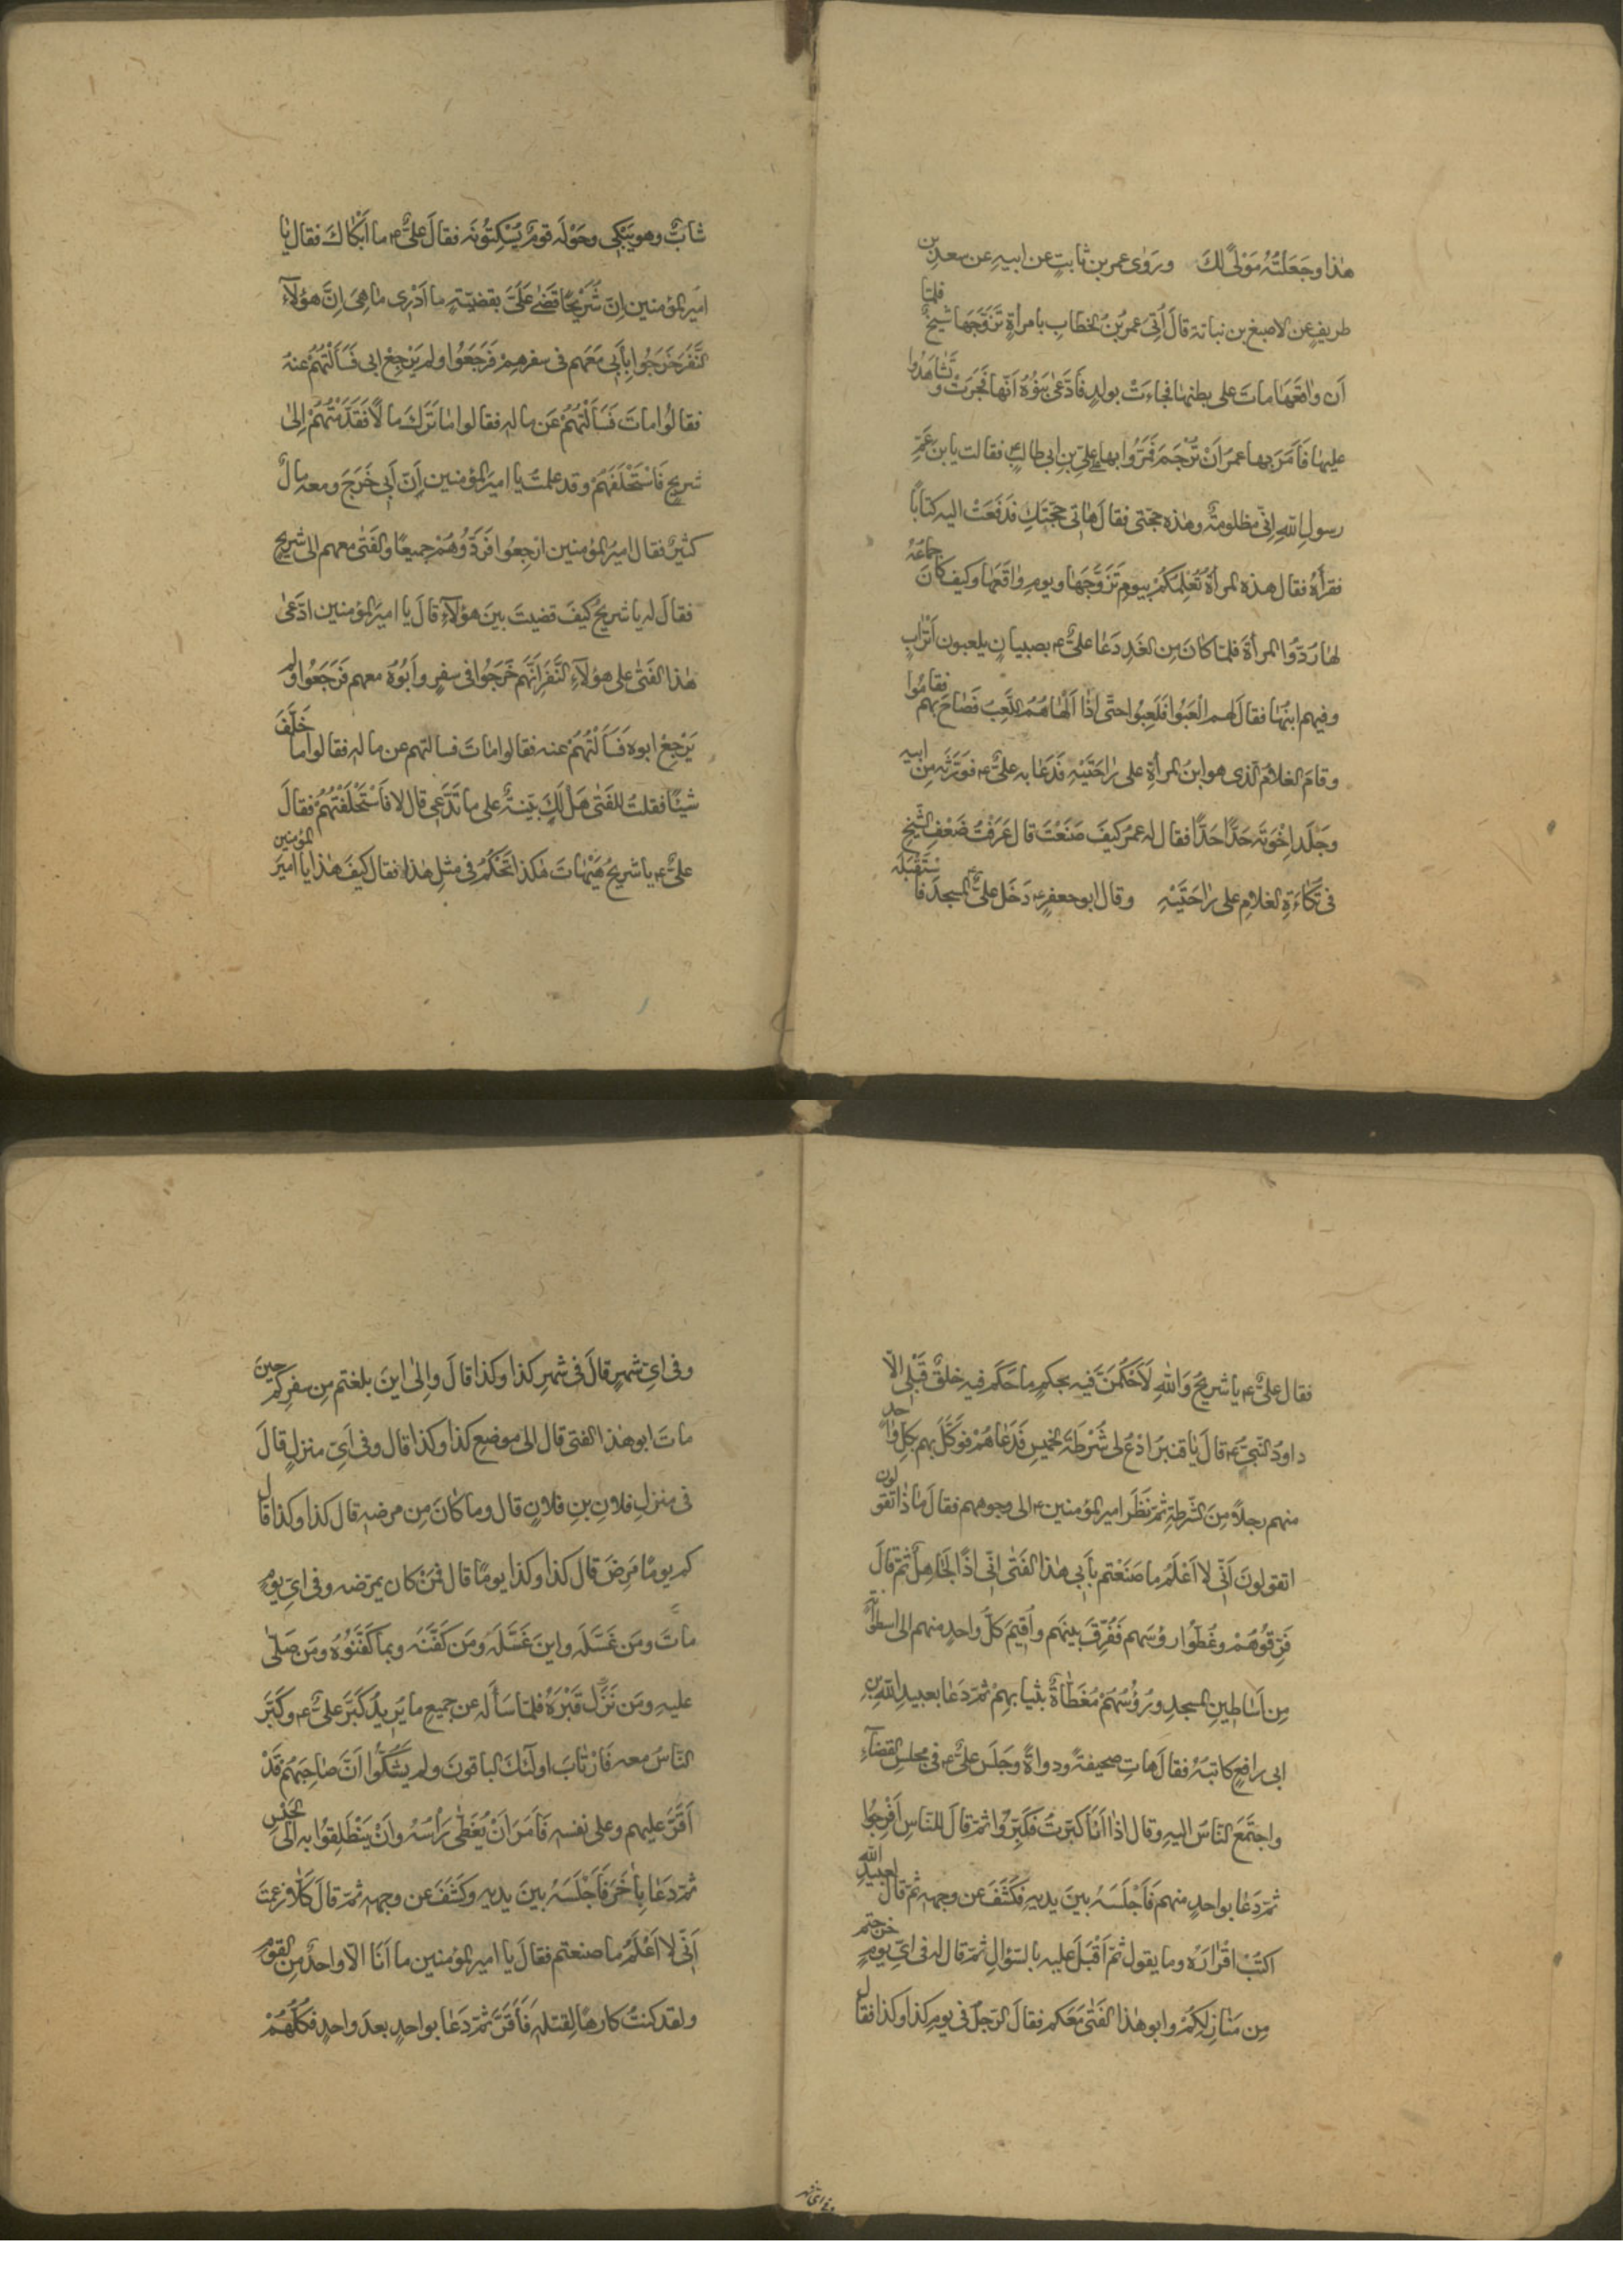 هٰذا وجَعَلتُهُ مَوْلیً لكَ ورَوٰى عمر بن ثابتٍ عن ابيهِ عن سعدِ بن
طريفٍ عن الاصبغ بن نباتة قالَ اُتِىَ عمرُ بنُ الخطابِ بامرأةٍ تَزَوَّجَها شيخٌ فلمّا
اَن واقَعَهَا ماتَ على بطنِها فجاءتْ بولدٍ فَادَّعىٰ بَنُوهُ اَنَّها فَجَرَتْ وتَشاهَدُوا
عليها فَاَمَرَ بها عمرُ اَنْ تُرْجَمَ فَمَرُّوا بها على علىّ بنِ ابى طالبٍ فقالت يا بنَ عَمّ
رسولِ اللّٰهِ اِنّى مظلومةٌ وهٰذه حجّتى فقال هاتى حجّتَكِ فدَفَعَتْ اليه كتابًا
فقرأهُ فقال هذه المرأةُ تُعْلِمُكُمْ بيومِ تَزَوَّجَهَا ويومِ واقَعَهَا وكيف كانَ جماعُهُ
لها رُدّوا المرأةَ فلمّا كانَ مِن الغَدِ دَعا علىٌّ ع بصبيانٍ يلعبون اَتْرابٍ
وفيهم ابنُها فقال لهم الْعَبُوا فلَعِبُوا حتّى اِذا اَلْهاهُمُ اللَّعِبُ فَصاحَ بهم فقامُوا
وقامَ الغلامُ الّذى هو ابنُ المرأةِ على راحَتَيْهِ فَدَعا به علىٌّ ع فوَرَّثَه مِن ابيه
وجَلَدَ اِخْوَتَه حَدًّا حَدًّا فقال له عمرُ كيفَ صَنَعْتَ قال عَرَفْتُ ضَعْفِ الشّيخِ
فى تُكَاءَةِ الغلامِ على راحَتَيْهِ وقال ابو جعفرٍ ع دَخَل علىٌّ ع المسجدَ فاسْتَقْبَلَه
شابٌّ وهو يَبْكى وحَوْلَه قومٌ يُسْكِتُونَه فقالَ علىٌّ ع ما اَبْكٰاكَ فقال يا
اميرَ المؤمنين اِنّ شُرَيْحًا قَضٰى عَلَىَّ بقضيّتةٍ ما اَدْرى ما هِىَ اِنَّ هؤلآءِ
النَّفَرَ خَرَجُوا بِاَبى مَعَهم فى سفرهِمْ فَرَجَعُوا ولم يَرْجِعْ ابى فَسَاَلْتُهُمْ عنهُ
فقالُوا ماتَ فَسَاَلْتُهُمْ عَن مالِهِ فقالوا ما تَرَكَ مالًا فَقَدَّمْتُهُمْ اِلىٰ
شريحٍ فَاسْتَحْلَفَهُمْ وقد علمتَ يا اميرَ المؤمنين اَنّ اَبى خَرَجَ ومعه مالٌ
كثيرٌ فقال اميرُ المؤمنين ارْجِعُوا فرَدُّوهُمْ جميعًا والفَتىٰ معهم الى شريحٍ
فقالَ له يا شريحُ كيفَ قضيتَ بينَ هؤلآءِ قالَ يا اميرَ المؤمنين ادّعىٰ
هذا الفَتٰى على هؤلآءِ النَّفَرِ اَنّهَم خَرَجُوا فى سفرٍ واَبُوهُ معهم فَرَجَعُوا ولم
يَرْجِعْ ابوه فَسَاَلْتُهُمْ عنه فقالوا ماتَ فسالتهم عن ماله فقالوا ما خَلَّفَ
شيئًا فقلتُ للفَتى هَلْ لَكَ بيّنةٌ على ما تَدَّعى قال لا فاَسْتَحْلَفْتُهُمْ فقالَ
علىٌّ ع يا شريحُ هَيْهاتَ هٰكذا تَحْكُمُ فى مثلِ هذا فقال كيفَ هذا يا اميرَ المؤمنين
فقال علىٌّ ع يا شريحُ وَاللّٰهِ لَاَحْكُمَنَّ فيه بحكمٍ ما حَكَم فيه خلقٌ قَبْلى الّا
داودُ النّبىّ ع قالَ يا قنبرُ ادْعُ لى شُرْطَةَ الخميسِ فَدَعاهُمْ فوَكَّلَ بهم بكلِّ واحدٍ
منهم رجلًا مِنَ الشّرطةِ ثمّ نَظَرَ اميرُ المؤمنين ع الى وجوههم فقالَ ماذا تقولون
اتقولونَ اَنّى لا اَعْلَمُ ما صَنَعْتم بِاَبى هٰذا الفَتٰى اِنّى اِذًا لَجاهِلٌ ثمّ قالَ
فَرِّقُوهُمْ وغَطُّوا رؤسَهم فَفُرِّقَ بينهَم واُقِيمَ كلُّ واحدٍ منهم الى اسطوانةٍ
مِن اَساطينِ المسجدِ ورُؤُسُهُمْ مُغَطّاةٌ بثيابهِمْ ثمّ دَعا بعبيدِ اللّٰهِ بنِ
ابى رافعٍ كاتبَهُ فقالَ هاتِ صحيفةً ودواةً وجَلَس علىٌّ ع فى مجلسِ القضآءِ
واجتمَعَ النّاسُ اليهِ وقال اذا اَنَا كبّرتُ فَكَبِّرُوا ثمّ قالَ للنّاسِ اَفْرِجُوا
ثمّ دَعا بواحدٍ منهم فَاَجْلَسَهُ بينَ يديهِ فكَشَفَ عن وجههِ ثمّ قالَ لعبيدِ اللّٰه
اكتُبْ اقْرارَهُ وما يقول ثمّ اَقْبَلَ عليهِ بالسّؤالِ ثمّ قال له فى اىّ يومٍ خرجتم
مِن مَنازِلِكُمْ وابو هٰذا الفَتٰى مَعَكم فقالَ الرّجلُ فى يومِ كذا وكذا فقال
وفى اىّ شهرٍ قالَ فى شهرِ كذا وكذا قالَ واِلىٰ اينَ بلغتم مِن سفرِكم حينَ
ماتَ ابو هذا الفتى قال الى موضعِ كذا وكذا قال وفى اَىّ منزلٍ قالَ
فى منزلِ فلانِ بنِ فلانٍ قال وما كانَ مِن مرضهِ قال كذا وكذا قال
كم يومًا مَرِضَ قال كذا وكذا يومًا قال فمَنْ كان يمرّضه وفى اىّ يومٍ
ماتَ ومَن غَسَّلَه واينَ غَسَّلَه ومَن كَفّنَه وبما كَفَّنُوهُ ومَن صَلّى
عليهِ ومَن نَزَل قَبْرَهُ فلمّا سَأَلَه عن جميعِ ما يُريدُ كَبَّرَ علىٌّ ع وكَبَّرَ
النّاسُ معه فَارْتابَ اولٓئكَ الباقونَ ولم يشُكُّوا اَنّ صاحِبَهُمْ قَدْ
اَقَرَّ عليهم وعلى نفسهِ فَاَمَرَ اَنْ يُغَطّى رَأْسُهُ واَنْ يَنْطَلِقُوا بهِ الى الحَبْسِ
ثمّ دَعا بِاٰخَرَ فَاَجْلَسَهُ بينَ يديهِ وكَشَفَ عن وجههِ ثمّ قالَ كَلّا زعمتَ
اَنّى لا اَعْلَمُ ما صنعتم فقالَ يا اميرَ المؤمنين ما اَنَا الّا واحدٌ مِن القومِ
ولقد كنتُ كارهًا لِقتلهِ فَاَقَرَّ ثمّ دَعا بواحدٍ بعدَ واحدٍ فكلُّهُمْ